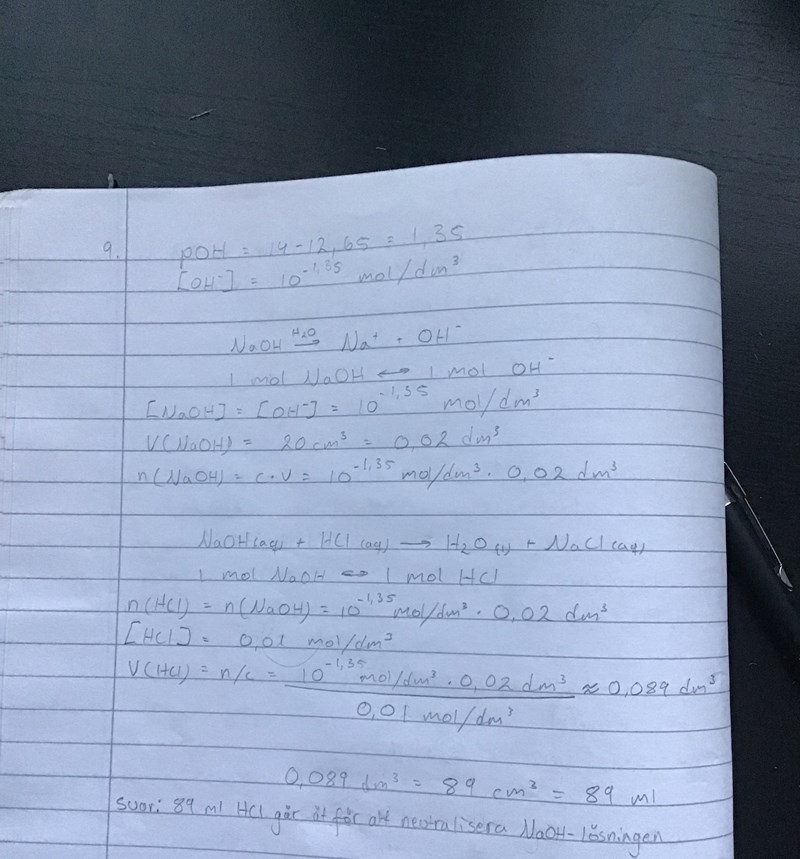 9. pOH = 14-12,65 = 1,35
[OH⁻] = 10⁻¹,³⁵ mol/dm³
NaOH H₂O→ Na⁺ + OH⁻
1 mol NaOH ↔ 1 mol OH⁻
[NaOH] = [OH⁻] = 10⁻¹,³⁵ mol/dm³
V(NaOH) = 20 cm³ = 0,02 dm³
n(NaOH) = c·V = 10⁻¹,³⁵ mol/dm³ · 0,02 dm³
NaOH(aq) + HCl(aq) → H₂O(l) + NaCl(aq)
1 mol NaOH ⇔ 1 mol HCl
n(HCl) = n(NaOH) = 10⁻¹,³⁵ mol/dm³ · 0,02 dm³
[HCl] = 0,01 mol/dm³
V(HCl) = n/c = 10⁻¹,³⁵ mol/dm³ · 0,02 dm³ ≈ 0,089 dm³
0,01 mol/dm³
0,089 dm³ = 89 cm³ = 89 ml
Svar: 89 ml HCl går åt för att neutralisera NaOH-lösningen